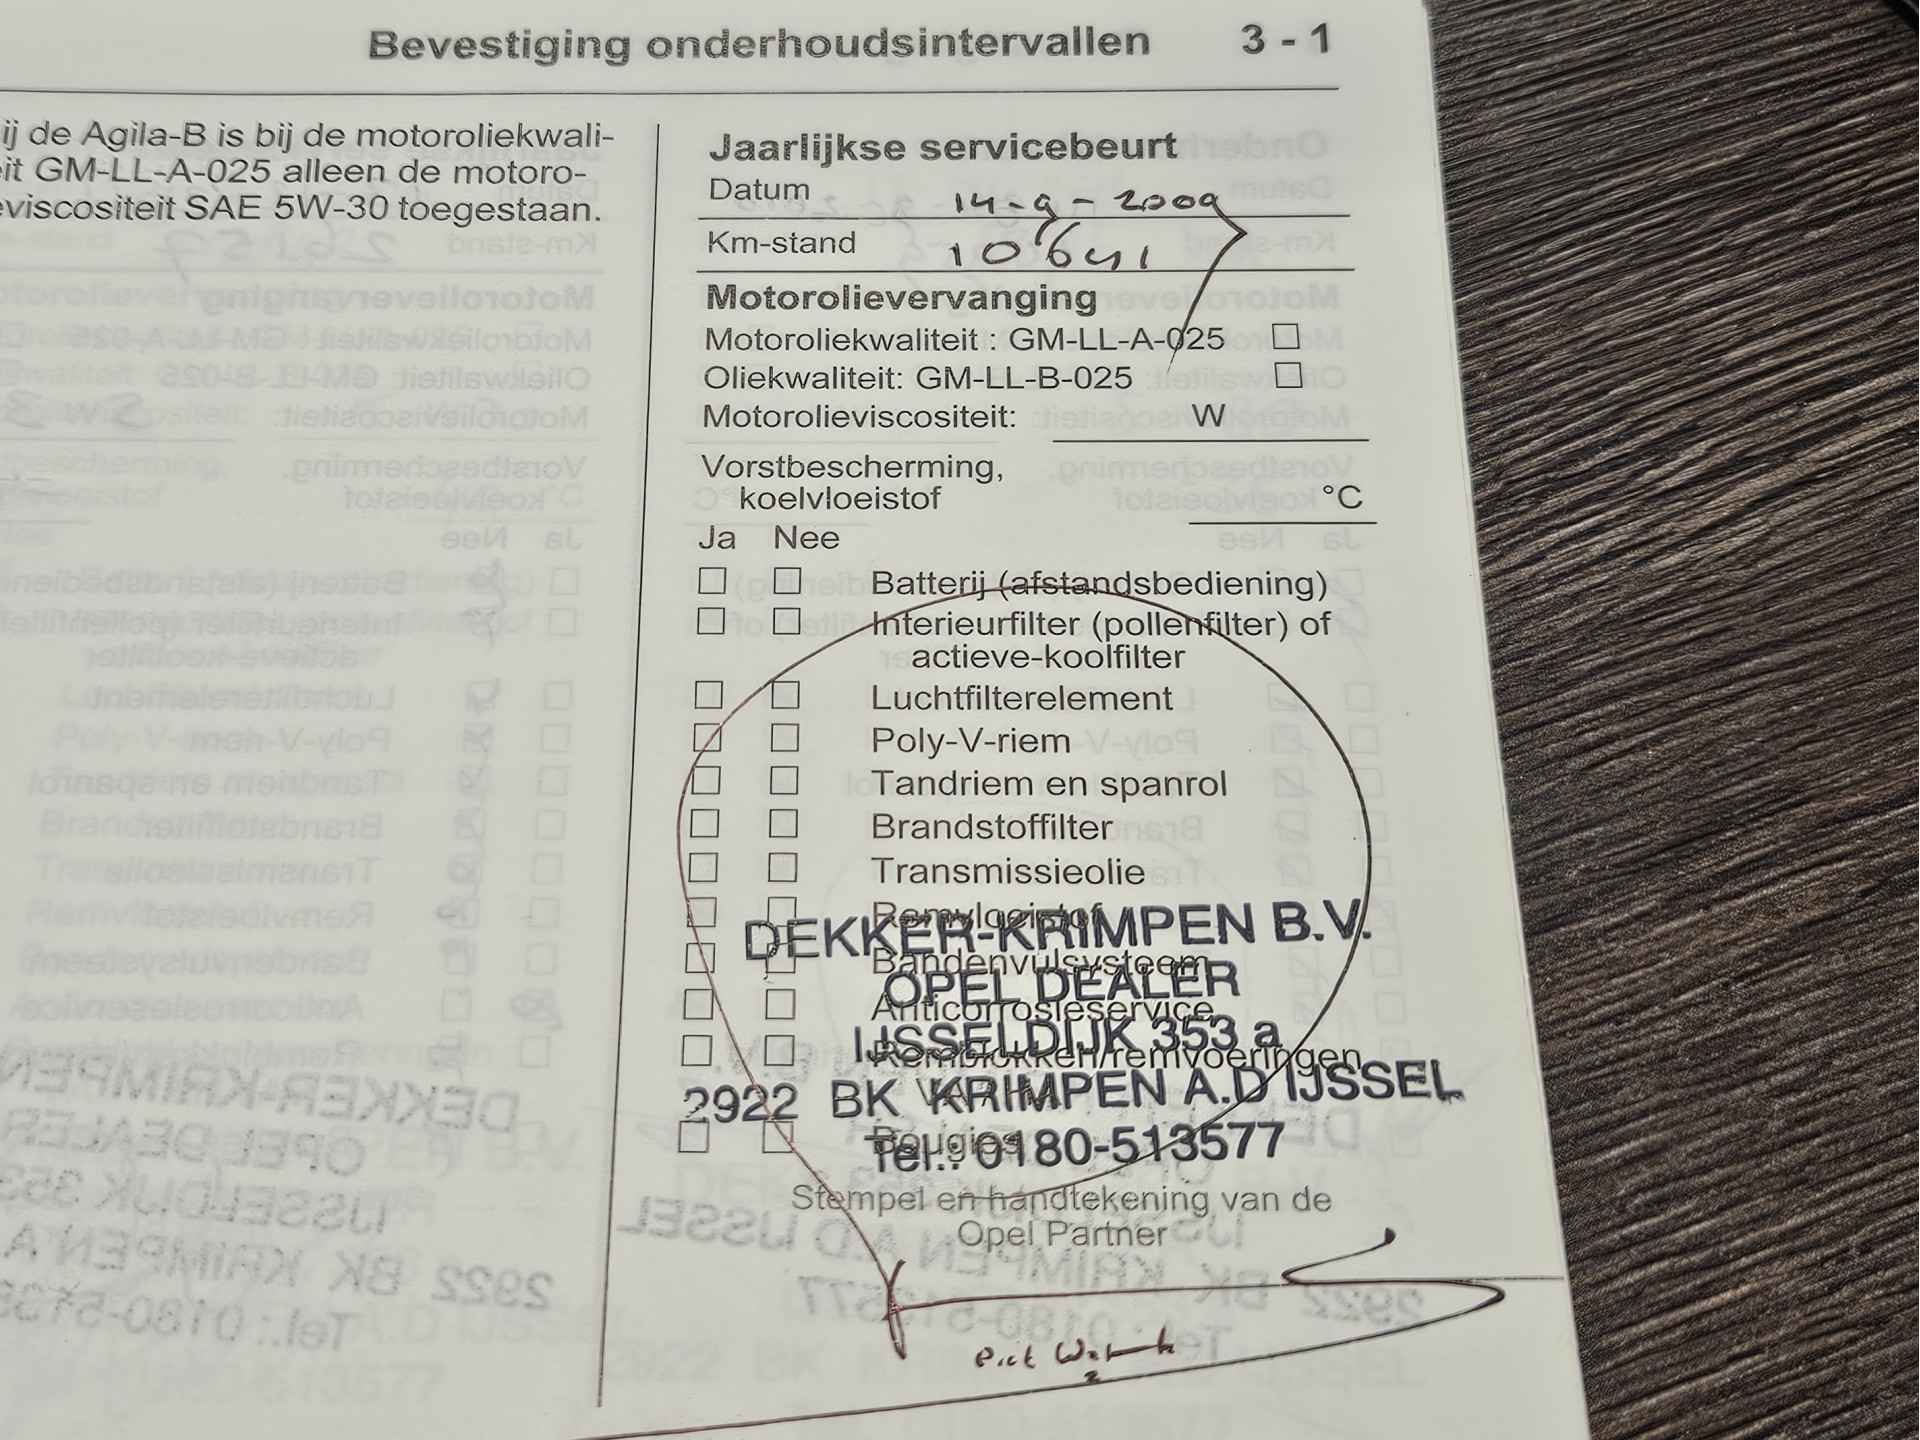 Bevestiging onderhoudsintervallen 3 - 1
ij de Agila-B is bij de motoroliekwali-
eit GM-LL-A-025 alleen de motoro-
eviscositeit SAE 5W-30 toegestaan.
Jaarlijkse servicebeurt
Datum 14-9-2009
Km-stand 10641
Motorolievervanging
Motoroliekwaliteit : GM-LL-A-025
Oliekwaliteit: GM-LL-B-025
Motorolieviscositeit: W
Vorstbescherming,
koelvloeistof °C
Ja Nee
Batterij (afstandsbediening)
Interieurfilter (pollenfilter) of
actieve-koolfilter
Luchtfilterelement
Poly-V-riem
Tandriem en spanrol
Brandstoffilter
Transmissieolie
Remvloeistof
DEKKER-KRIMPEN B.V.
Bandenvulsysteem
OPEL DEALER
Anticorrosieservice
IJSSELDIJK 353 a
Remblokken/remvoeringen
2922 BK KRIMPEN A.D IJSSEL
Bougies
Tel.: 0180-513577
Stempel en handtekening van de
Opel Partner